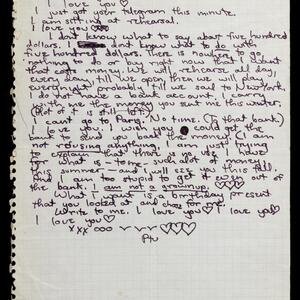 I love you ♡
I just got your telegram this minute.
I am sitting at rehearsal.
I love you ♡♡
I don't know what to say about five hundred
dollars. I don't know what to do with
five hundred dollars. There is nowhere to go,
nothing to do or buy right now that
that costs money. We will rehearse all day,
every day, till we open then we will play
every night probably till we sail to New York.
I do not have a bank account. I can't
with me the money you sent me this winter.
(Most of it is still left.)
I can't go to Paris. No time. (To that bank.)
I love you. I wish you could get the
bank to send you back the money. I am
not refusing anything, I am just trying
to explain that there is no use I have
for what is – to me – such alot of money
this summer – and I will see you this fall.
And I am too stupid to get it even out of
the bank. I am not a grownup. ♡
What I want is a birthday present
that you looked at and chose for me.
Write to me. I love you ♡ I love you
I love you ♡
XXX OOO ♡♡♡